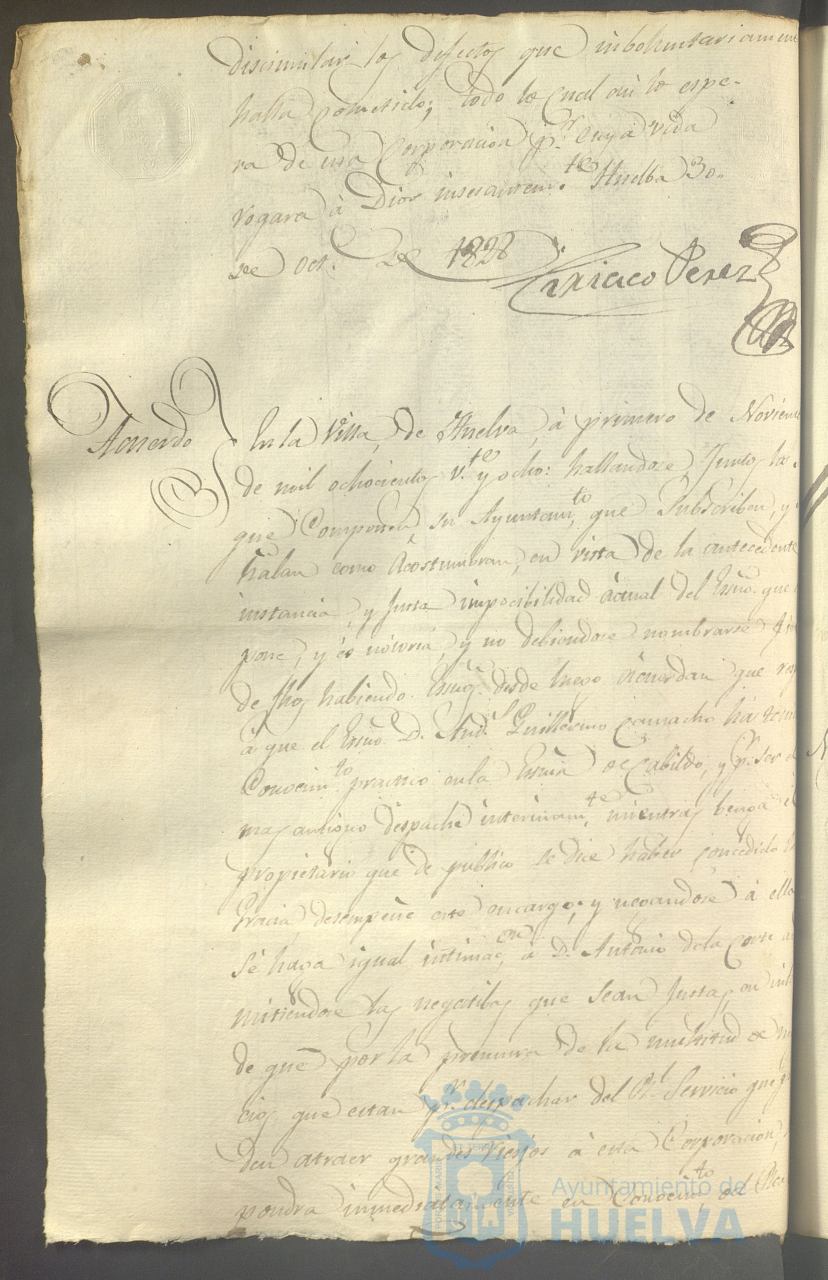 disimular los defectos que inboluntariamen
halla cometido; todo lo cual asi lo espe-
ra de esa Corporacion p.r cuya vida
rogara à Dios insesantem.te Huelba 30.
de Oct.e de 1828
Ciriaco Perez
Acuerdo
En la Villa de Huelva, à primero de Noviem
de mil ochocientos v.te y ocho: hallandose Juntos los
que componen su Ayuntam.to que Subscriben, y
halan como Acostumbran, en vista de la antecedente
instancia, y Justa imposibilidad àctual del Essno. que
pone, y és nótoria, y no debiendose nombrarse
de fhos habiendo Essnos. desde luego àcuerdan que
à que el Essno. D. And.s Guillermo Camacho ha
Conocim.to practico en la Essnia. de Cabildo, y p.r ser el
mas antiguo despache ìnterinam.te mientras benga el
propietario que de publico se dice haber concedido
Gracia, desempeñe este encargo; y negandose à ello
se haga igual ìntimac.on à D. Antonio de la Corte
mitiendose las negatibas que sean Justas, en
de que por la premura de la multitud de
cios que estan p.r despachar del R.l Servicio que
den atraer grandes riesgos à esta Corporacion,
pondra inmediatamente en Conocim.to del
Ayuntamiento de
HUELVA